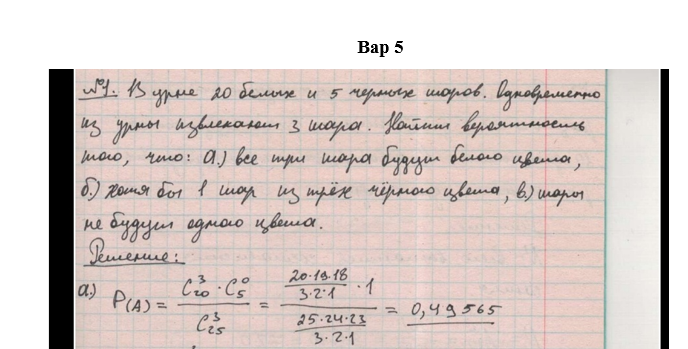 Вар 5
№1. В урне 20 белых и 5 черных шаров. Одновременно
из урны извлекают 3 шара. Найти вероятность
того, что: а.) все три шара будут белого цвета,
б.) хотя бы 1 шар из трёх чёрного цвета, в.) шары
не будут одного цвета.
Решение:
а.) P(A) = C³₂₀ · C⁰₅ / C³₂₅ = (20·19·18 / 3·2·1 · 1) / (25·24·23 / 3·2·1) = 0,49565